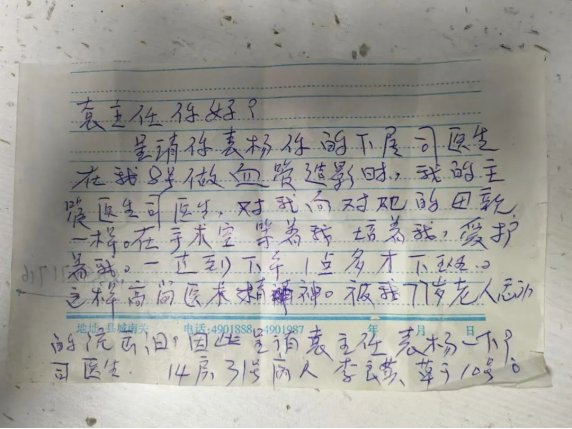 袁主任你好?
呈请你表杨你的下属司医生
在我8号做血管造影时,我的主
管医生司医生,对我向对她的田亲
一样。在手术室 等着我 培着我,爱护
着我,一直到下午1点多才下班。
这样高尚医术精神。被我77岁老人感动
地址:县城南关 电话:4901888 4901987 年 月 日
的 因此呈请袁主任表杨一下
司医生. 14房31号病人 李 草于10号。